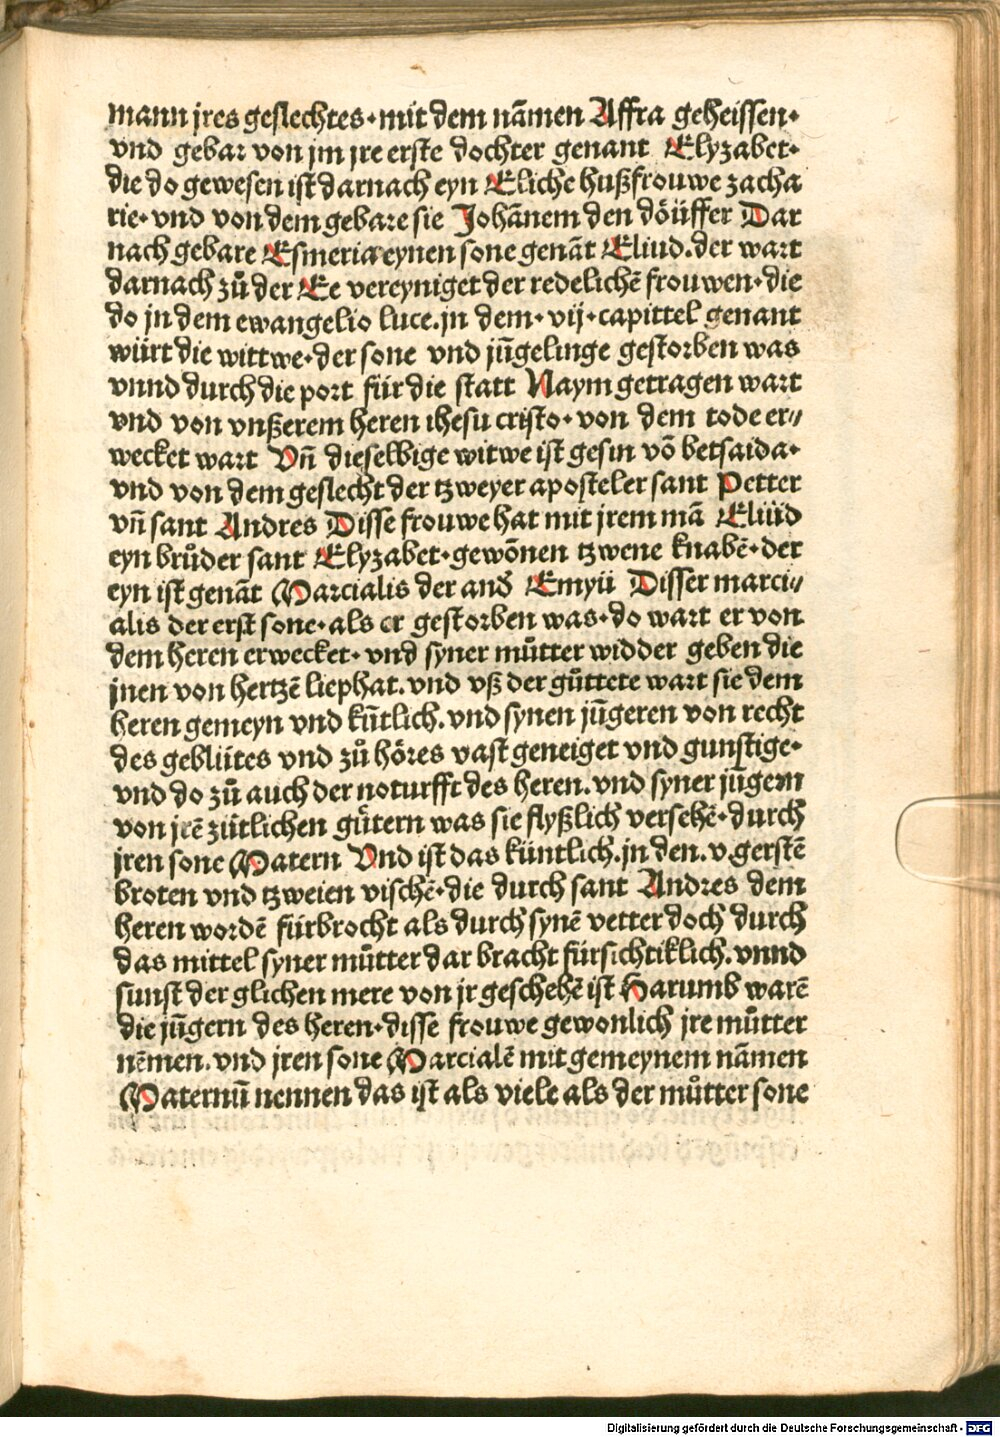 mann jres geslechtes· mit dem nãmen Affra geheissen·
vnd gebar von jm jre erste dochter genant Elyzabet·
die do gewesen ist darnach eyn Eliche hußfrouwe zacha
rie· vnd von dem gebare sie Johãnem den döüffer Dar
nach gebare Esmeria eynen sone genãt Eliud. der wart
darnach zů der Ee vereyniget der redelichẽ frouwen· die
do jn dem ewangelio luce. jn dem· vij· capittel genant
würt die wittwe· der sone vnd jũgelinge gestorben was
vnnd durch die port für die statt Naym getragen wart
vnd von vnßerem heren ihesu cristo· von dem tode er⸗
wecket wart Vñ dieselbige witwe ist gesin võ betsaida·
vnd von dem geslecht der tzweyer aposteler sant Petter
vñ sant Andres Disse frouwe hat mit jrem mã Eliüd
eyn brůder sant Elyzabet· gewõnen tzwene knabẽ· der
eyn ist genãt Marcialis der and̃ Emyü Disser marci⸗
alis der erst sone· als er gestorben was· do wart er von
dem heren erwecket· vnd syner můtter widder geben die
jnen von hertzẽ liep hat. vnd vß der gůttete wart sie dem
heren gemeyn vnd kũtlich. vnd synen jũgeren von recht
des geblütes vnd zů höres vast geneiget vnd gunstige·
vnd do zů auch der noturfft des heren. vnd syner jũgern
von jrẽ zütlichen gůtern was sie flyßlich versehẽ· durch
jren sone Matern Vnd ist das küntlich. jn den. v. gerstẽ
broten vnd tzweien vischẽ· die durch sant Andres dem
heren wordẽ fürbrocht als durch synẽ vetter doch durch
das mittel syner můtter dar bracht fürsichtiklich. vnnd
sunst der glichen mere von jr geschehẽ ist Harumb warẽ
die jũgern des heren· disse frouwe gewonlich jre můtter
nẽmen. vnd jren sone Marcialẽ mit gemeynem nãmen
Maternũ nennen das ist als viele als der můtter sone
Digitalisierung gefördert durch die Deutsche Forschungsgemeinschaft - DFG